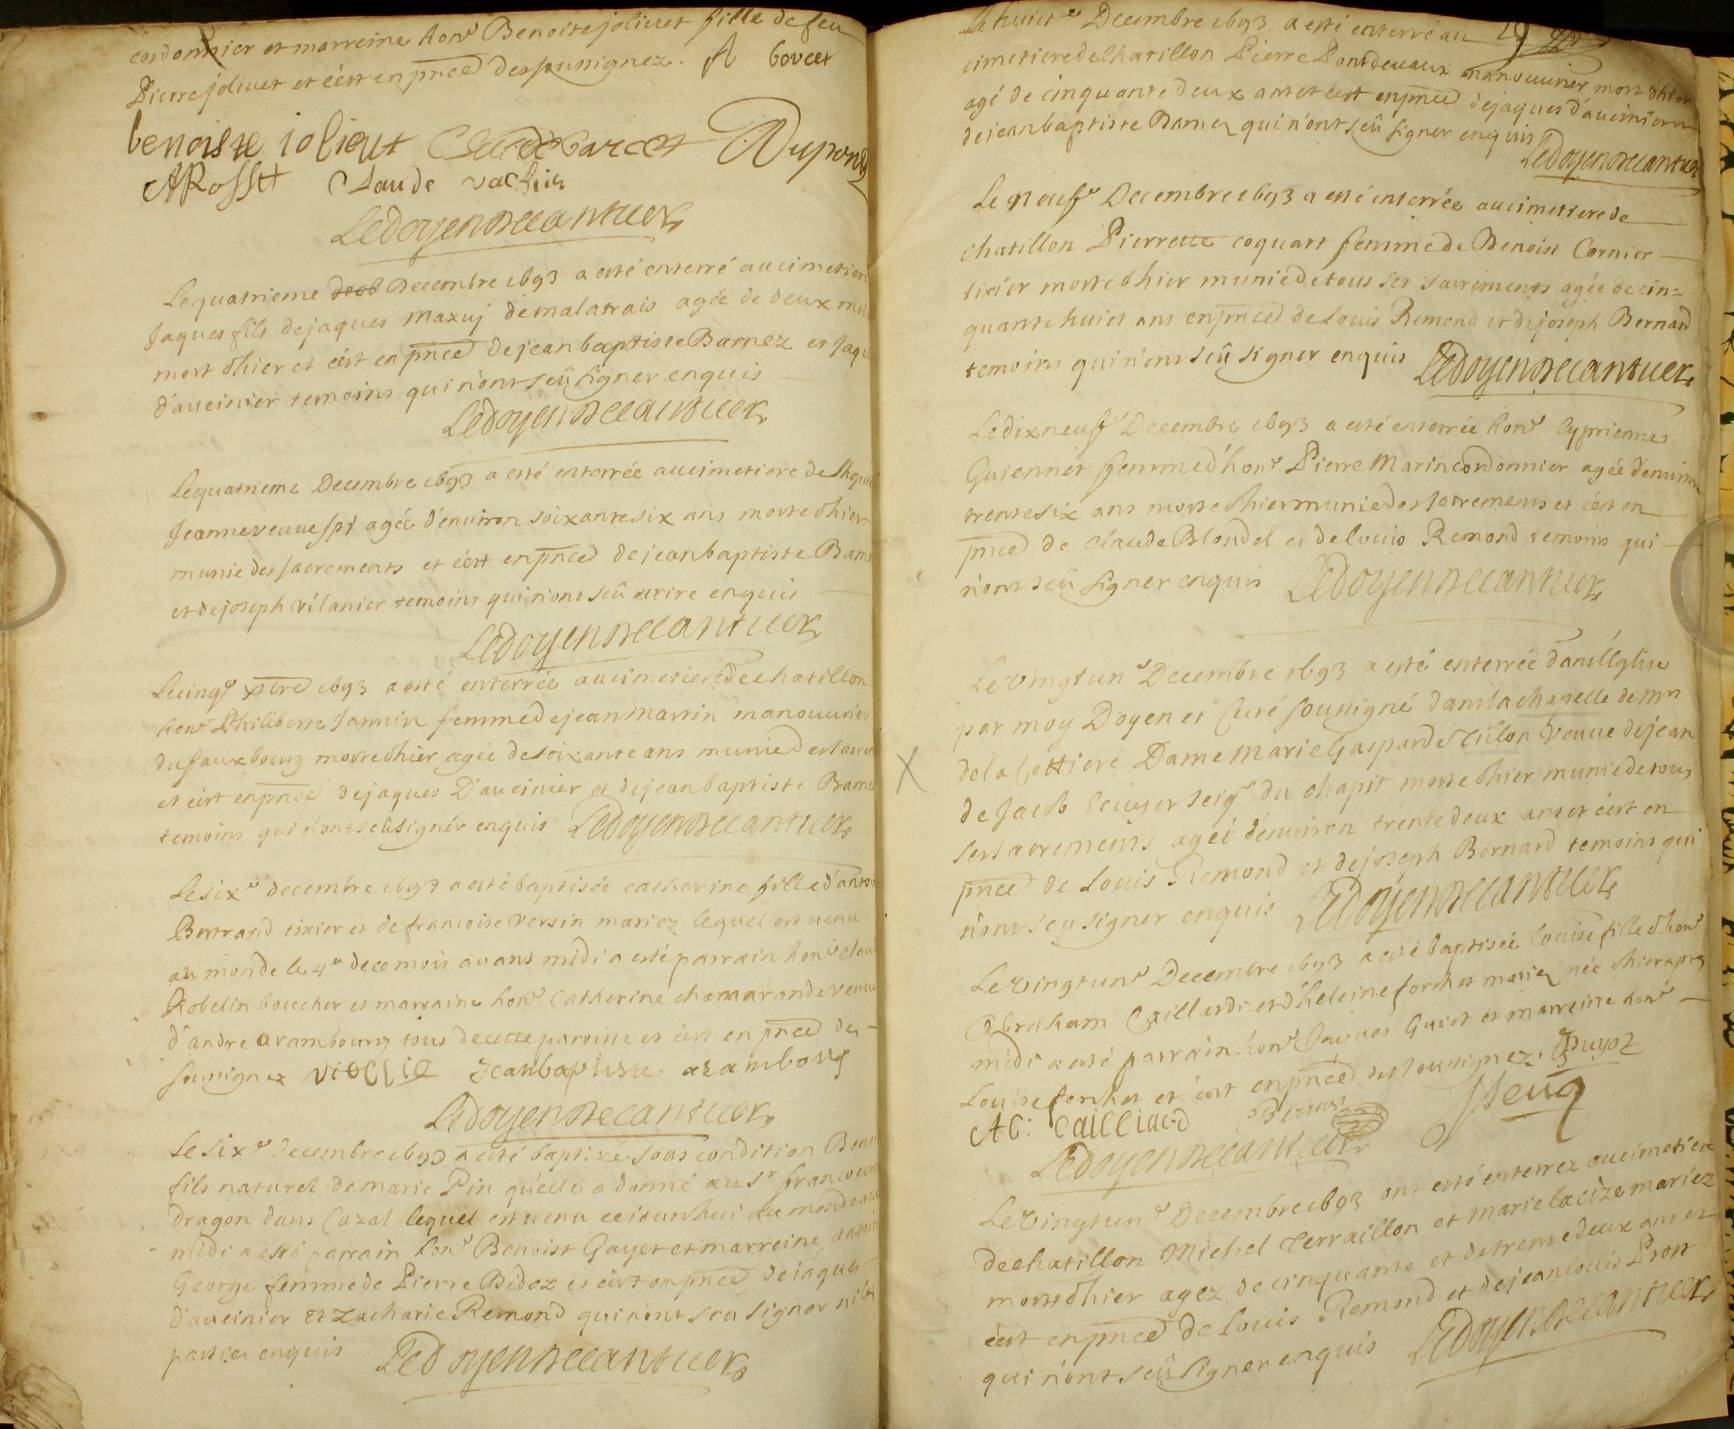 cordonnier et marreine hon^e Benoite jolivet fille de feu
Pierre jolivet et c'est en pnce des soussignez. bovcet
benoiste iolieut Claude barcet Dupont
ARosset Claude vachie
Ledoyen Decantuer
Le quatrieme Decembre 1693 a esté enterré au cimetiere
Jaques fils de jaques Mazuj de malatrais agée de deux
mort d'hier et c'est en pnce de jean baptiste Bamez et Jaq
d'aveinier temoins qui n'ont seû signer enquis
Ledoyen Decantuer
Le quatrieme Decembre 1693 a esté enterrée au cimetiere de
Jeanne veuve agée d'environ soixante six ans morte d'hier
munie des sacrements et c'est en pnce de jean baptiste Bam
et de joseph vilanier temoins qui n'ont seû ecrire enquis
Ledoyen Decantuer
Le cinq^e xbre 1693 a esté enterrée au cimetiere de chatillon
hon^e Philiberte Jannin femme de jean Martin manouvrier
du fauxbourg morte d'hier agée de soixante ans munie des sacre
et c'est en pnce de jaques D'aveinier et de jean baptiste Bame
temoins qui n'ont seû signér enquis Ledoyen Decantuer
Le six^e decembre 1693 a esté baptisée catherine fille d'antoi
Bertrand tixier et de francoise versin mariez lequel est venu
au monde le 4^e de ce mois avant midi a esté parrain hon^e clau
Robelin boucher et marraine hon^e Catherine chamarande veuve
d'andre arambourg tous de cette paroisse et c'est en pnce des
soussignez Jeanbaptiste arambourg
Ledoyen Decantuer
Le six^e decembre 1693 a esté baptizé sous condition Ben
fils naturel de marie Pin qu'elle a donné au s^r francois
dragon dans Cazal lequel est venu ce jourd'hui au monde
midi a esté parrain hon^e Benoist Gayet et marreine
George femme de Pierre Bidoz et c'est en pnce de jaques
d'aveinier et Zacharie Remond qui n'ont seu signer ni les
parties enquis Ledoyen Decantuer
Le huict^e Decembre 1693 a esté enterré au 19
cimetiere de Chatillon Pierre Pontdevaux manouvrier mort d'hier
agé de cinquante deux ans et c'est en pnce de jaques d'aveinier et
de jean baptiste Bamez qui n'ont seû signer enquis
Ledoyen Decantuer
Le neuf^e Decembre 1693 a esté enterrée au cimetiere de
chatillon Pierrette coquart femme de Benoist Cornier
tixier morte d'hier munie de tous ses sacrements agée de cin=
quante huict ans en pnce de Louis Remond et de joseph Bernard
temoins qui n'ont seû signer enquis Ledoyen Decantuer
Le dixneuf^e Decembre 1693 a esté enterrée hon^e Cyprienne
Guiennet femme d'hon^e Pierre Marin cordonnier agée d'environ
trente six ans morte d'hier munie des sacrements et c'est en
pnce de Claude Blondel et de Louis Remond temoins qui
n'ont seû signer enquis Ledoyen Decantuer
Le vingt un^e Decembre 1693 a esté enterrée dans l'Eglise
par moy Doyen et Curé soussigné dans la chapelle de m^r
de la Cottiere Dame Marie Gaspard de Tillon veuve de jean
de Jacob Ecuyer Seig^r du chapit morte d'hier munie de tous
ses sacrements agée d'environ trente deux ans et c'est en
pnce de Louis Remond et de joseph Bernard temoins qui
n'ont seu signer enquis Ledoyen Decantuer
Le vingt un^e Decembre 1693 a esté baptisée Louise fille d'hon^e
Abraham Caillardi et d'heleine forchet mariez née d'hier apres
midi a esté parrain hon^e Guiot et marreine hon^e
Louise forchet et c'est en pnce des soussignez. Guyot
AC: Cailliard
Ledoyen Decantuer
Le vingt un^e Decembre 1693 ont esté enterrez au cimetiere
de chatillon Michel Terraillon et Marie lacize mariez
morts d'hier agez de cinquante et de trente deux ans et
c'est en pnce de Louis Remond et de jean louis Pront
qui n'ont seû signer enquis Ledoyen Decantuer